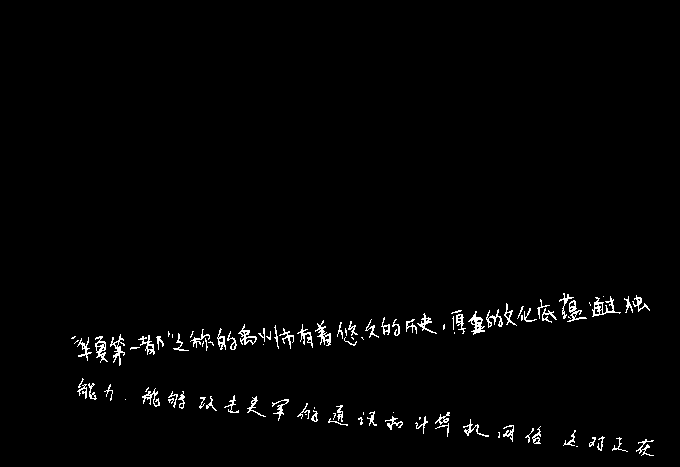 "华夏第一都"之称的禹州市有着悠久的历史,厚重的文化底蕴通过独
能力.能够攻击美军的通讯和计算机网络 这对正在